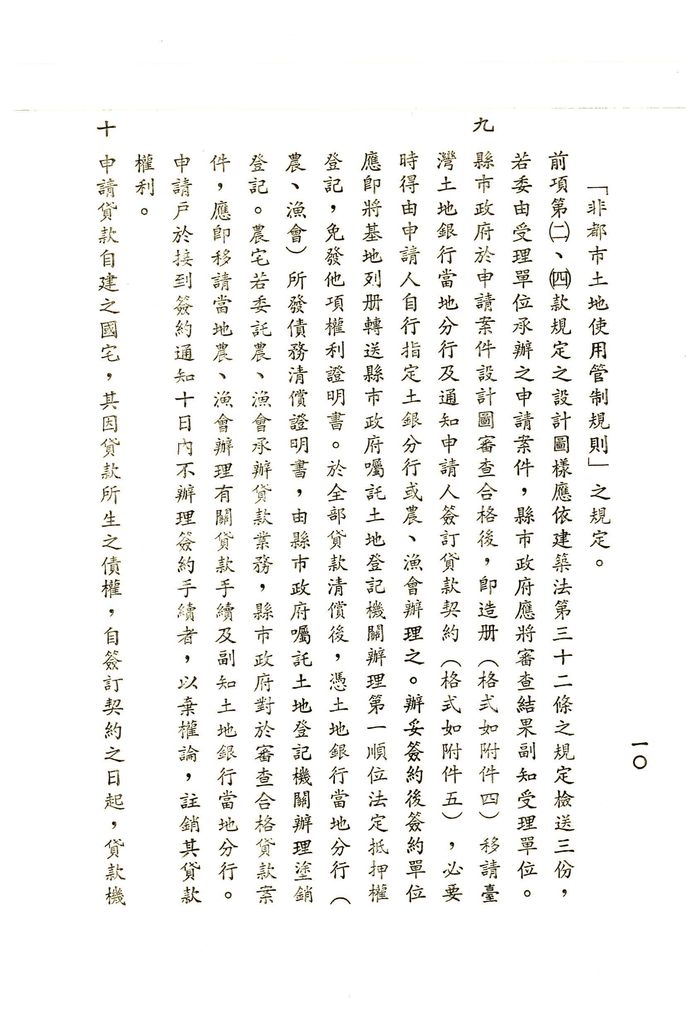 「非都市土地使用管制規則」之規定。
前項第㈡、㈣款規定之設計圖樣應依建築法第三十二條之規定檢送三份，
若委由受理單位承辦之申請案件，縣市政府應將審查結果副知受理單位。
九　縣市政府於申請案件設計圖審查合格後，卽造册（格式如附件四）移請臺
灣土地銀行當地分行及通知申請人簽訂貸款契約（格式如附件五），必要
時得由申請人自行指定土銀分行或農、漁會辦理之。辦妥簽約後簽約單位
應卽將基地列册轉送縣市政府囑託土地登記機關辦理第一順位法定抵押權
登記，免發他項權利證明書。於全部貸款清償後，憑土地銀行當地分行（
農、漁會）所發債務清償證明書，由縣市政府囑託土地登記機關辦理塗銷
登記。農宅若委託農、漁會承辦貸款業務，縣市政府對於審查合格貸款案
件，應卽移請當地農、漁會辦理有關貸款手續及副知土地銀行當地分行。
申請戶於接到簽約通知十日內不辦理簽約手續者，以棄權論，註銷其貸款
權利。
十　申請貸款自建之國宅，其因貸款所生之債權，自簽訂契約之日起，貸款機
一〇